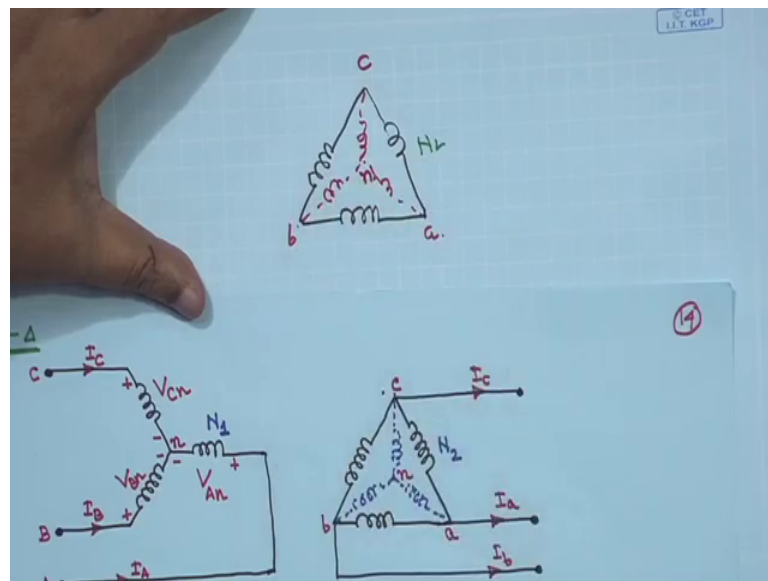 © CET
I.I.T. KGP
C
N2
n
b
a
14
-Δ
C
I_C
V_Cn
n
N1
V_Bn
V_An
B
I_B
I_A
c
I_c
N2
n
b
a
I_a
I_b